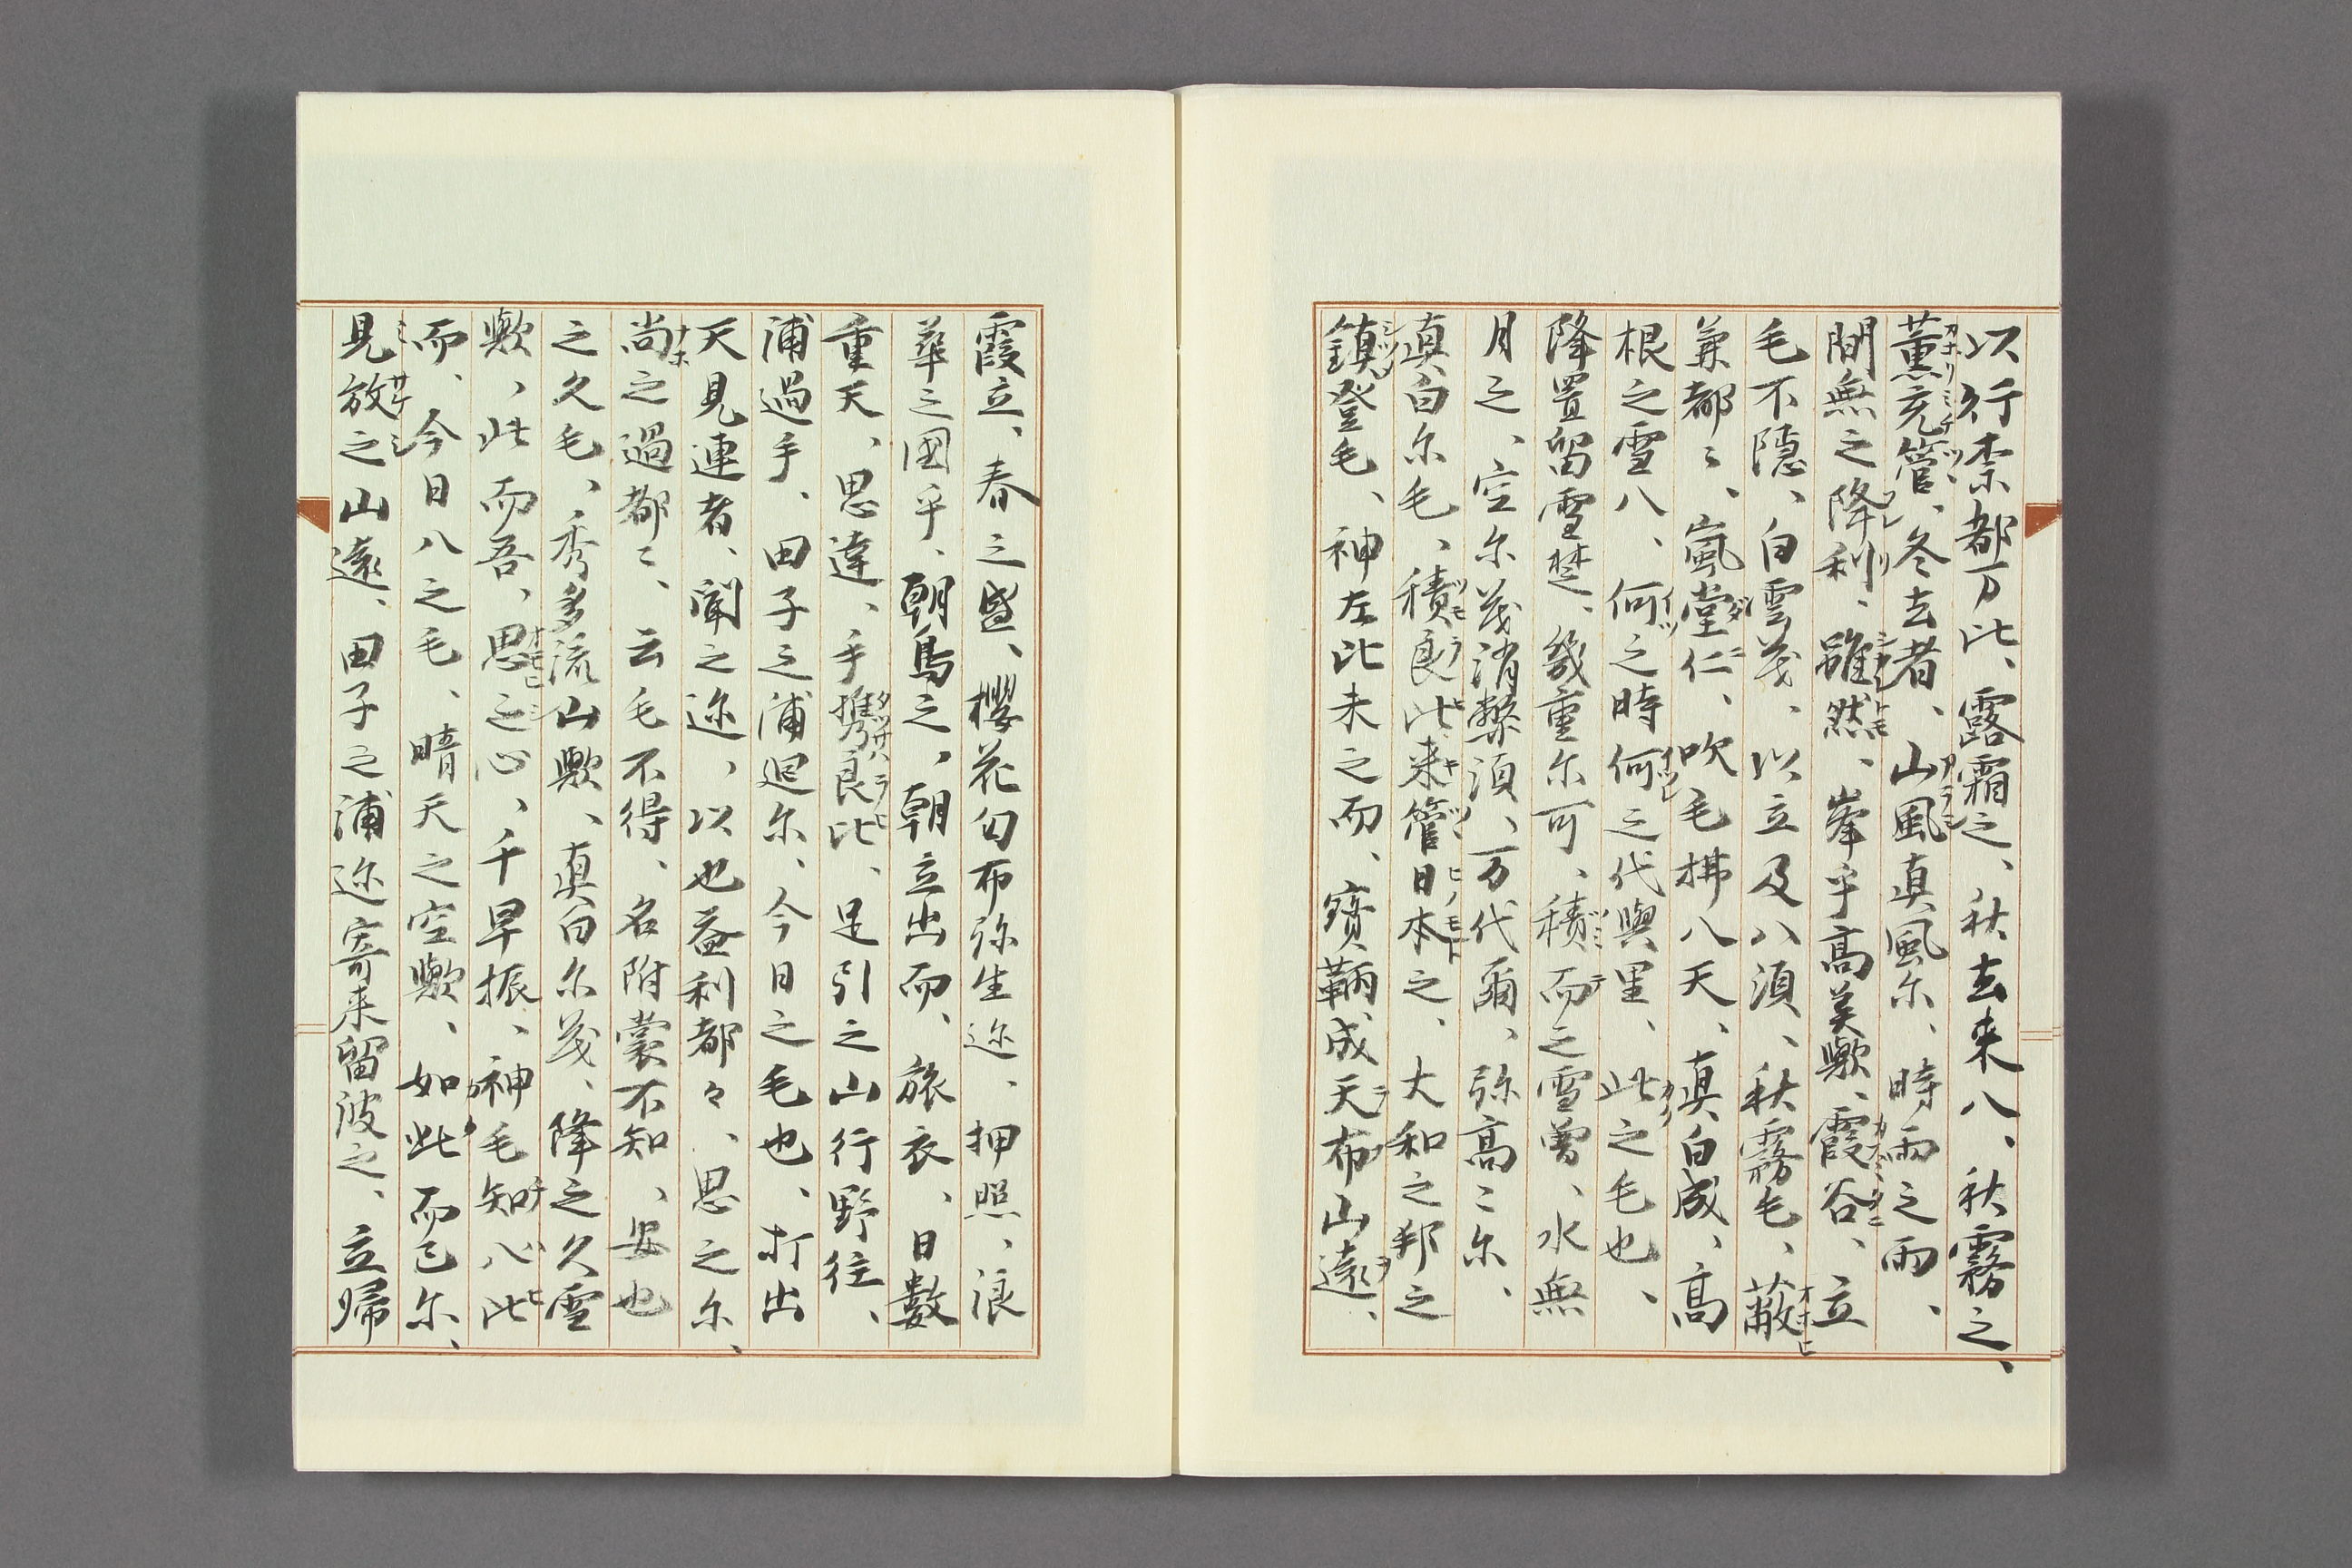 以行柰都万比、露霜之、秋去来八、秋霧之、
薫充管、冬去者、山風真風尓、時雨之雨、
間無之降利、雖然、峯乎高美歟、霞谷、立
毛不隠、白雲茂、以立及八須、秋霧毛、蔽
兼都〻、嵐堂仁、吹毛拂八天、真白成、高
根之雪八、何之時何之代與里、此之毛也、
降置留雪埜、幾重尓可、積而之雪曽、水無
月之、空尓茂消弊須、万代爾、弥高〻尓、
真白尓毛、積良比来管日本之、大和之邦之
鎮登毛、神左比未之而、寳鞆成天布山遠、
霞立、春之盛、櫻花匂布弥生迩、押照、浪
華之國乎、朝鳥之、朝立出而、旅衣、日數
重天、思達、手携良比、足引之山行野往、
浦過手、田子之浦廻尓、今日之毛也、打出
天見連者、聞之迩、以也益利都々、思之尓、
尚之過都〻、云毛不得、名附裳不知、安也
之久毛、秀多流山歟、真白尓茂、降之久雪
歟、此而吾、思之心、千早振、神毛知八比
而、今日八之毛、晴天之空歟、如此而已尓、
見放之山遠、田子之浦迩寄来留波之、立帰